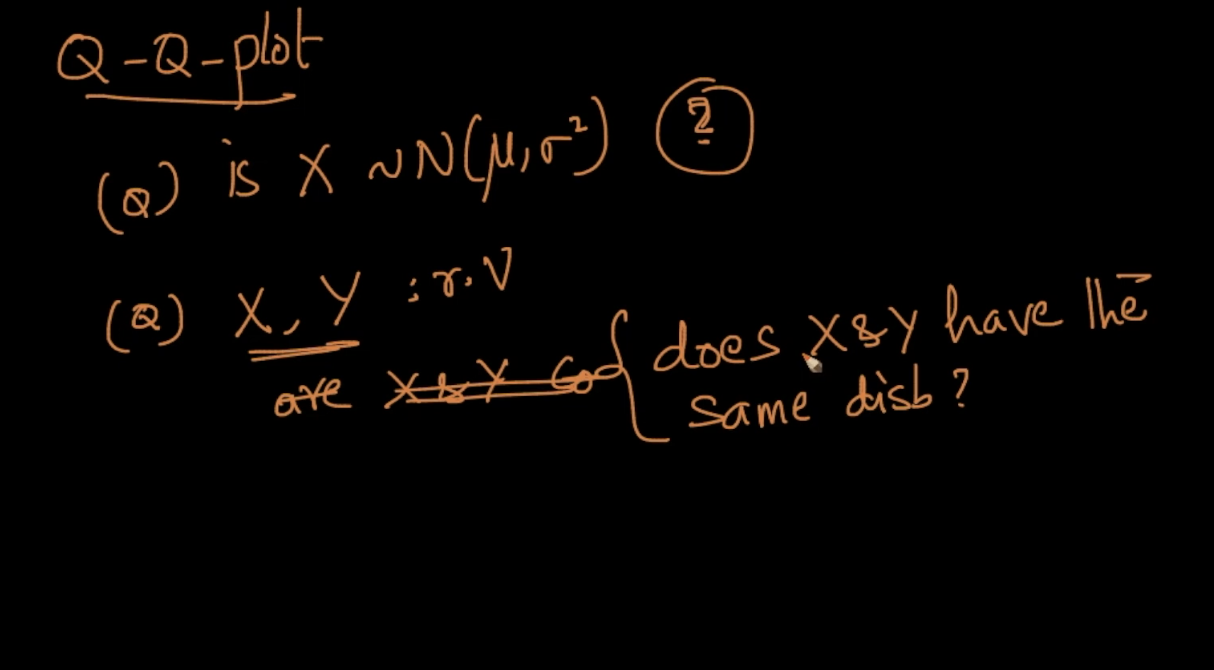 Q-Q-plot
(Q) is X ~ N(μ, σ²) ?
(Q) X, Y : r.V
are X & Y Co { does X & Y have the
same disb ?